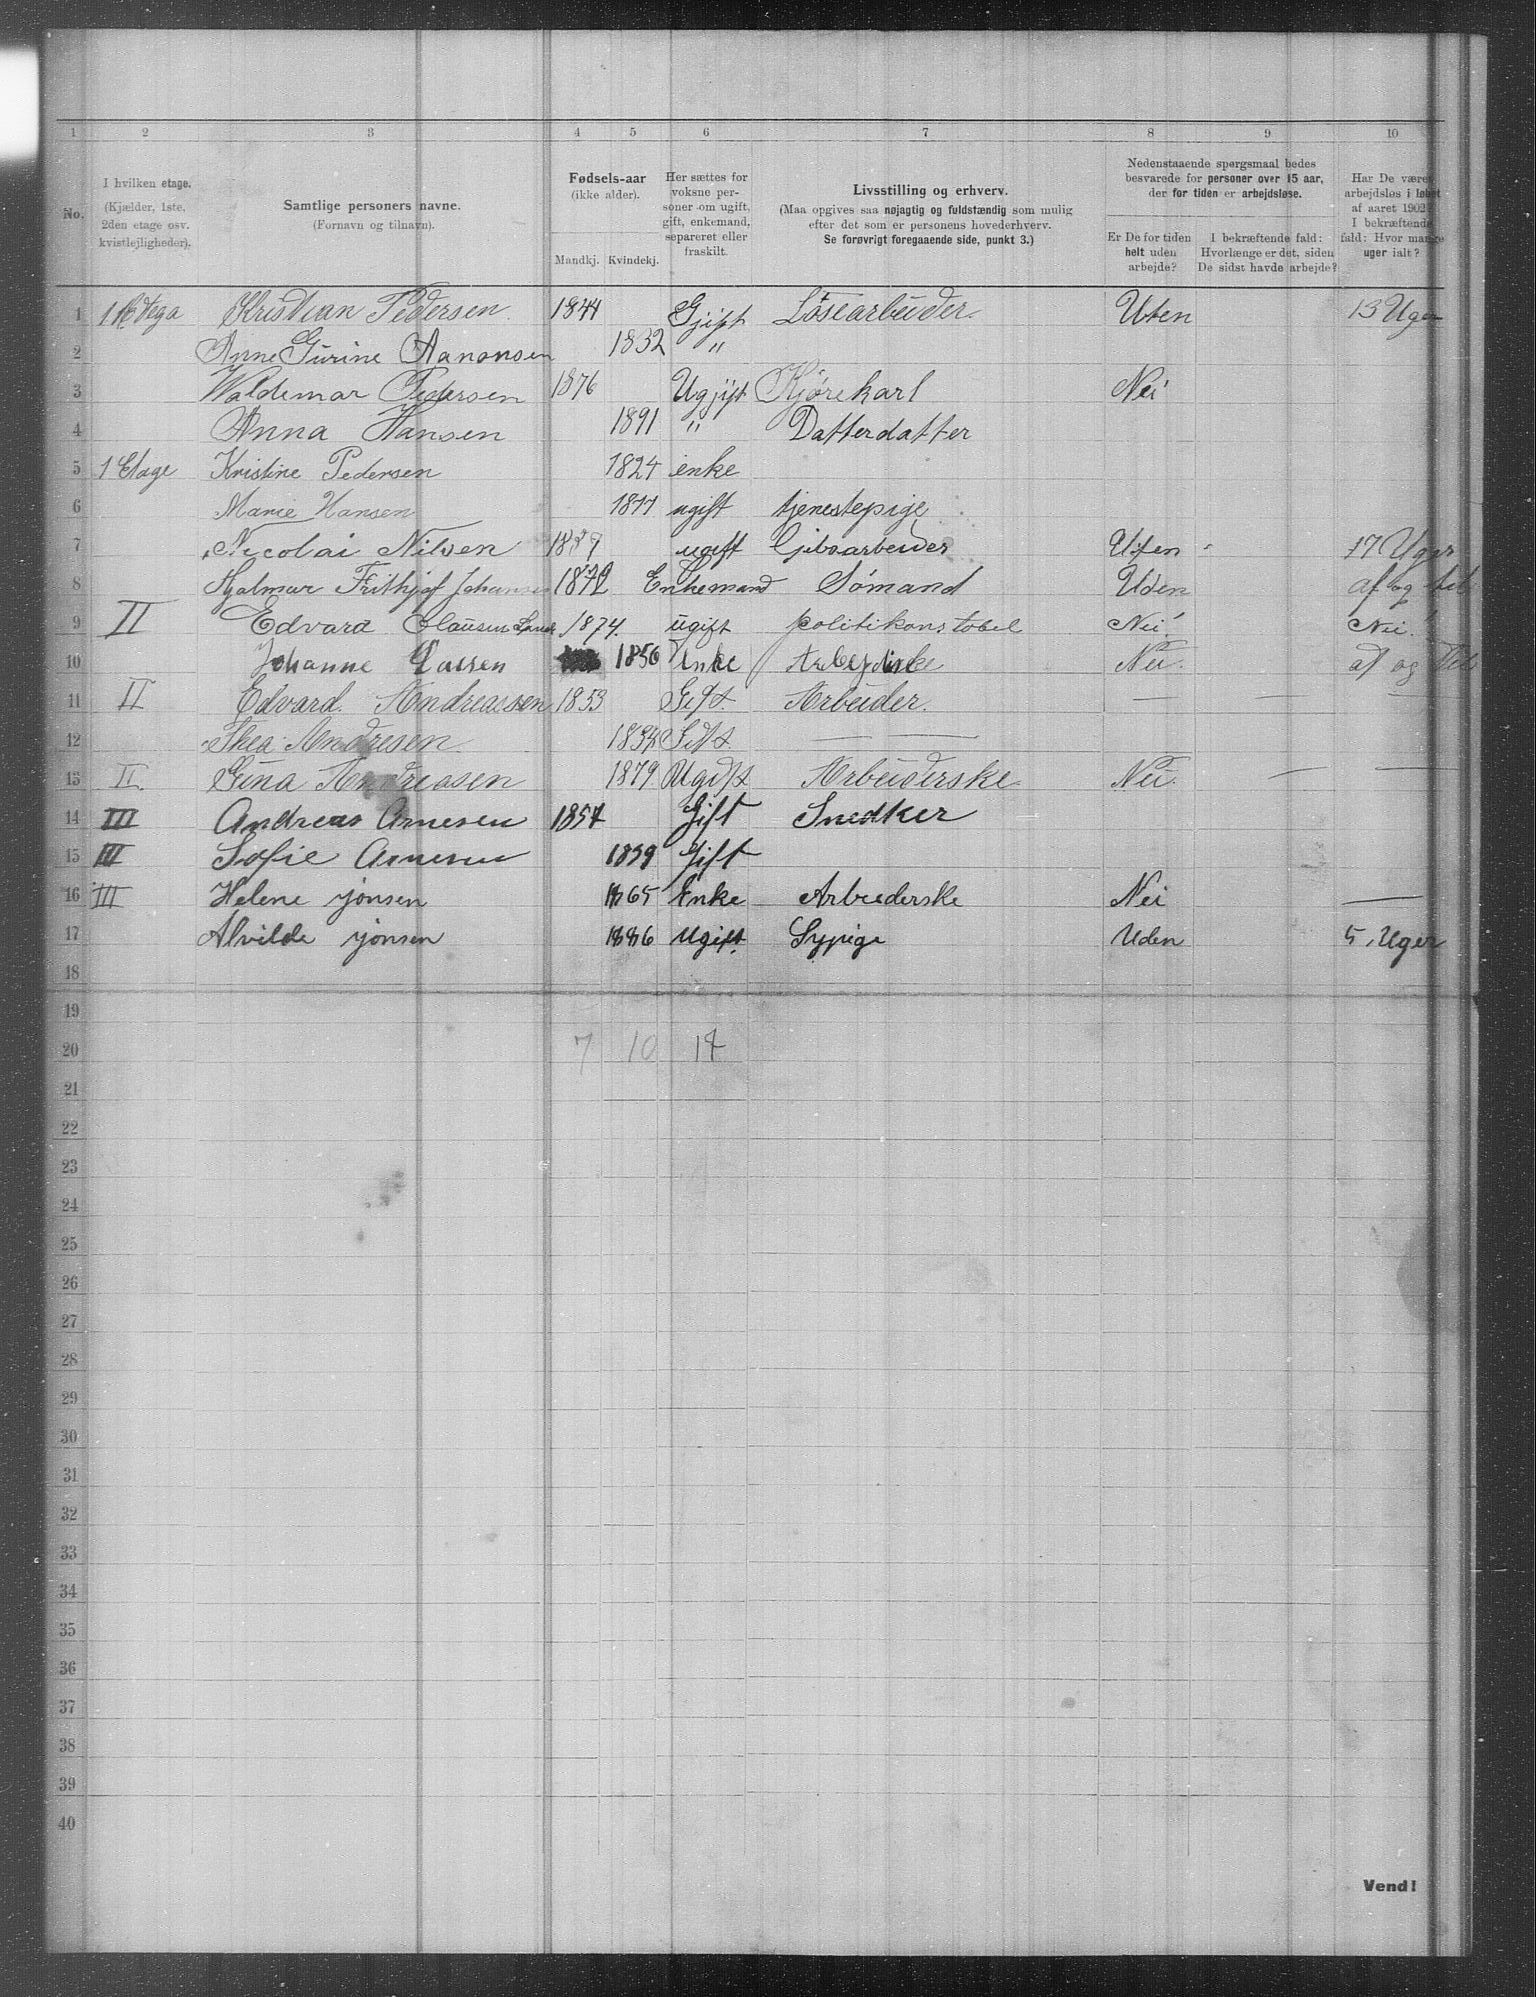 1 2 3 4 5 6 7 8 9 10
No.
I hvilken etage.
(Kjælder, 1ste,
2den etage osv.
kvistlejligheder).
Samtlige personers navne.
(Fornavn og tilnavn).
Fødsels-aar
(ikke alder).
Mandkj. Kvindekj.
Her sættes for
voksne per-
soner om ugift,
gift, enkemand,
separeret eller
fraskilt.
Livsstilling og erhverv.
(Maa opgives saa nøjagtig og fuldstændig som mulig
efter det som er personens hovederhverv.
Se forøvrigt foregaaende side, punkt 3.)
Nedenstaaende spørgsmaal bedes
besvarede for personer over 15 aar,
der for tiden er arbejdsløse.
Er De for tiden
helt uden
arbejde?
I bekræftende fald:
Hvorlænge er det, siden
De sidst havde arbejde?
Har De været
arbejdsløs i løbet
af aaret 1902
I bekræftende
fald: Hvor mange
uger ialt?
1 Kristian Pedersen 1844 Gjift Løsearbeider Uten 13 Uger
2 Anne Gurine Aanonsen 1832 "
3 Waldemar Pedersen 1876 Ugjift Kjørekarl Nei
4 Anna Hansen 1891 " Datterdatter
5 1 Etage Kristine Pedersen 1824 enke
6 Marie Hansen 1877 ugift tjenestepige
7 Nicolai Nilsen ugift Gibsarbeider Uten 17 Uger
8 Hjalmar Frithjof Johansen 1872 Enkemand Sømand Uden af og til
9 II Edvard Clausen 1874. ugift politikonstobel Nei! Nei!
10 Johanne Lassen 1856 Enke Nei. af og til
11 II Edvard Andreassen 1853 Gift Arbeider. — — —
12 Thea Andresen 1854 Gift — —
13 II Gina Andreasen 1879 Ugift Arbeiderske Nei. — —
14 III Andreas Arnesen 1857 Gift Snedker
15 III Sofie Arnesen 1859 Gift
16 III Helene jonsen 1865 Enke Arbeiderske Nei —
17 Alvilde jonsen 1886 Ugift Sypige Uden 5 Uger
18
19
20 7 10 17
21
22
23
24
25
26
27
28
29
30
31
32
33
34
35
36
37
38
39
40
Vend!